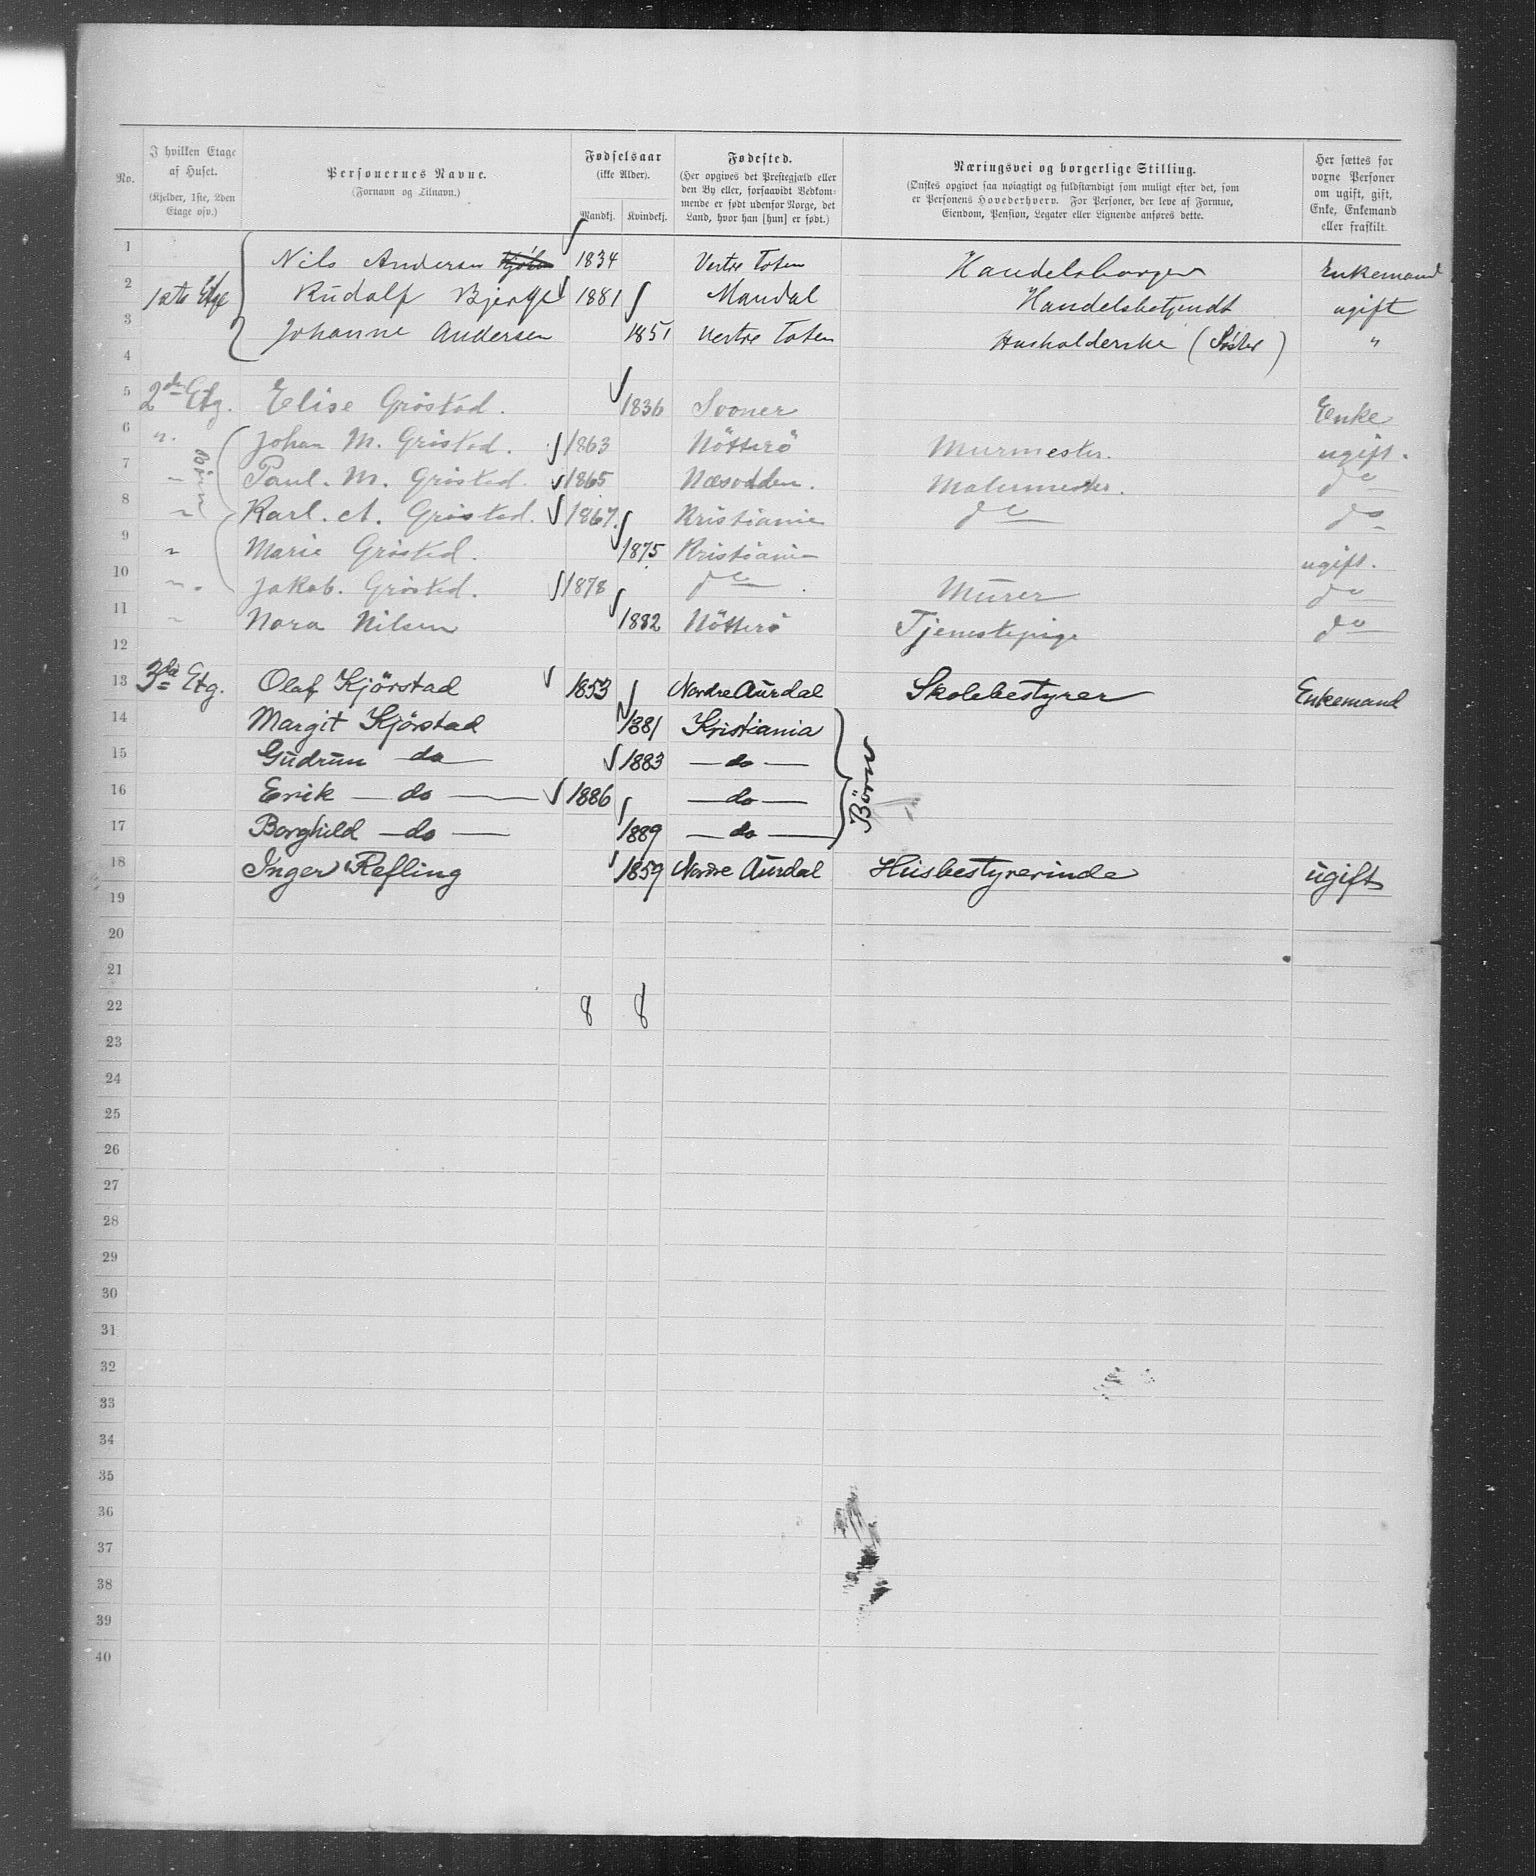 No. | I hvilken Etage af Huset. (Kjelder, 1ste, 2den Etage osv.) | Personernes Navne. (Fornavn og Tilnavn.) | Fødselsaar (ikke Alder). Mandkj. | Kvindekj. | Fødested. (Her opgives det Prestegjæld eller den By eller, forsaavidt Vedkommende er født udenfor Norge, det Land, hvor han [hun] er født.) | Næringsvei og borgerlige Stilling. (Ønskes opgivet saa nøiagtigt og fuldstændigt som muligt efter det, som er Personens Hovederhverv. For Personer, der leve af Formue, Eiendom, Pension, Legater eller Lignende anføres dette. | Her sættes for voxne Personer om ugift, gift, Enke, Enkemand eller fraskilt.
1 Nils Andersen 1834 Vestre Toten Handelsborger Enkemand
2 1ste Etge Rudolf Bjerge 1881 Mandal Handelsbetjendt ugift
3 Johanne Andersen 1851 Vestre Toten Husholderske (Søster) "
4
5 2den Etg. Elise Gröstad. 1836 Svoner Enke
6 ". Johan M. Gröstad. 1863 Nötterö Murmester. ugift.
7 " Börn Paul. M. Gröstad. 1865 Næsodden. Malermester. do
8 " Karl. A. Gröstad. 1867. Kristiania do do
9 " Marie Gröstad. 1875 Kristiania ugift.
10 " Jakob. Gröstad. 1878 do Murer do
11 " Nora Nilsen 1882 Nötterö Tjenestepige do
12
13 3die Etg. Olaf Kjörstad 1853 Nordre Aurdal Skolebestyrer Enkemand
14 Margit Kjörstad 1881 Kristiania
15 Gudrun — do — 1883 — do — Börn
16 Erik — do — 1886 — do —
17 Borghild — do — 1889 — do —
18 Inger Refling 1859 Nordre Aurdal Husbestyrerinde ugift
19
20
21
22 8 8
23
24
25
26
27
28
29
30
31
32
33
34
35
36
37
38
39
40